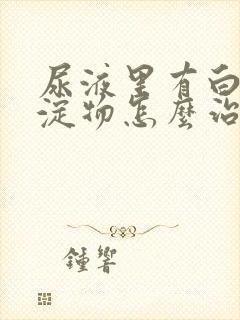 尿液里有白
淀物怎麽治
鍾響